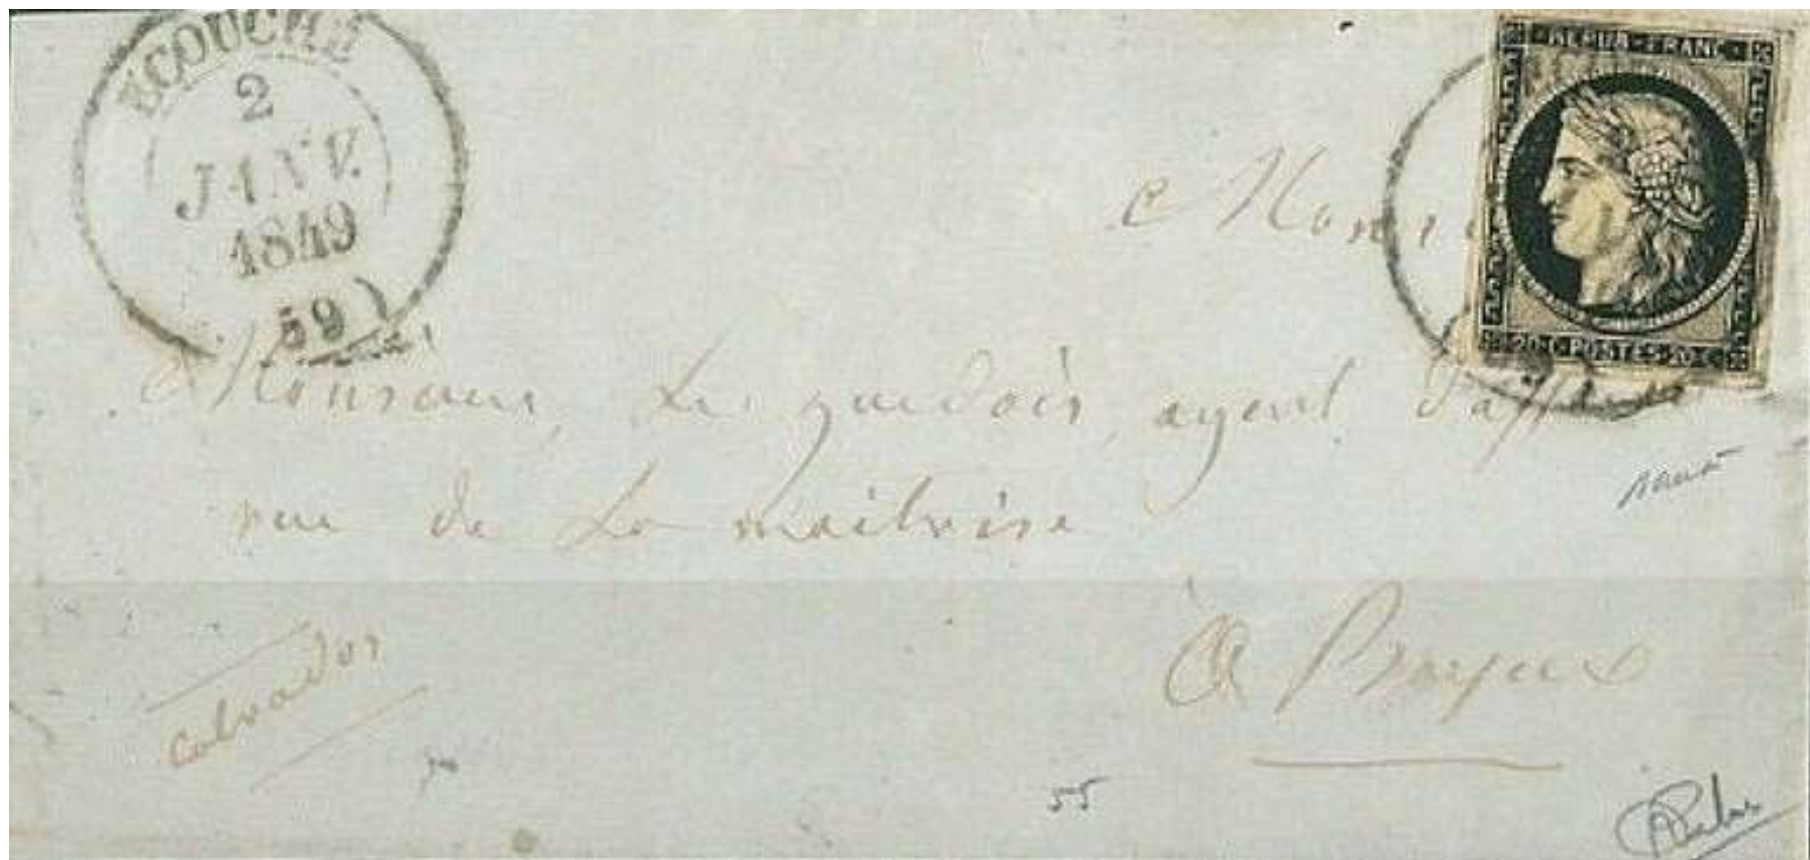 ECOUCHÉ
2
JANV.
1849
(59)
REPUB · FRANC
20 · C · POSTES · 20 · C
Monsieur
Monsieur, Le guedois, agent d'aff
rue de La maitrise
A Bayeux
calvados
55